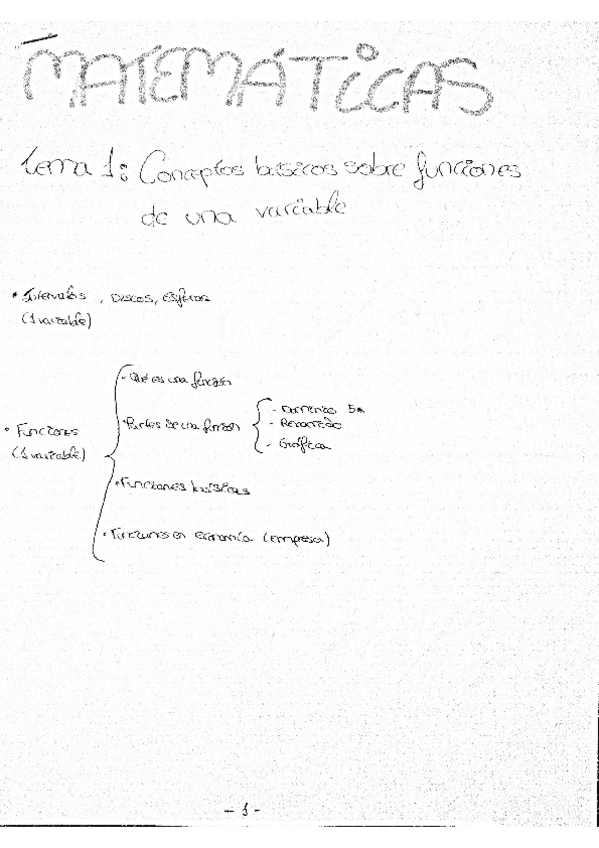 MATEMÁTICAS
Tema 1: Conceptos básicos sobre funciones
de una variable
• Intervalos, Discos, Esferas
(1 variable)
• Funciones
(1 variable)
- Qué es una función
• Partes de una función
- Dominio
- Recorrido
- Gráfica
• Funciones básicas
• Funciones en economía (empresa)
- 1 -